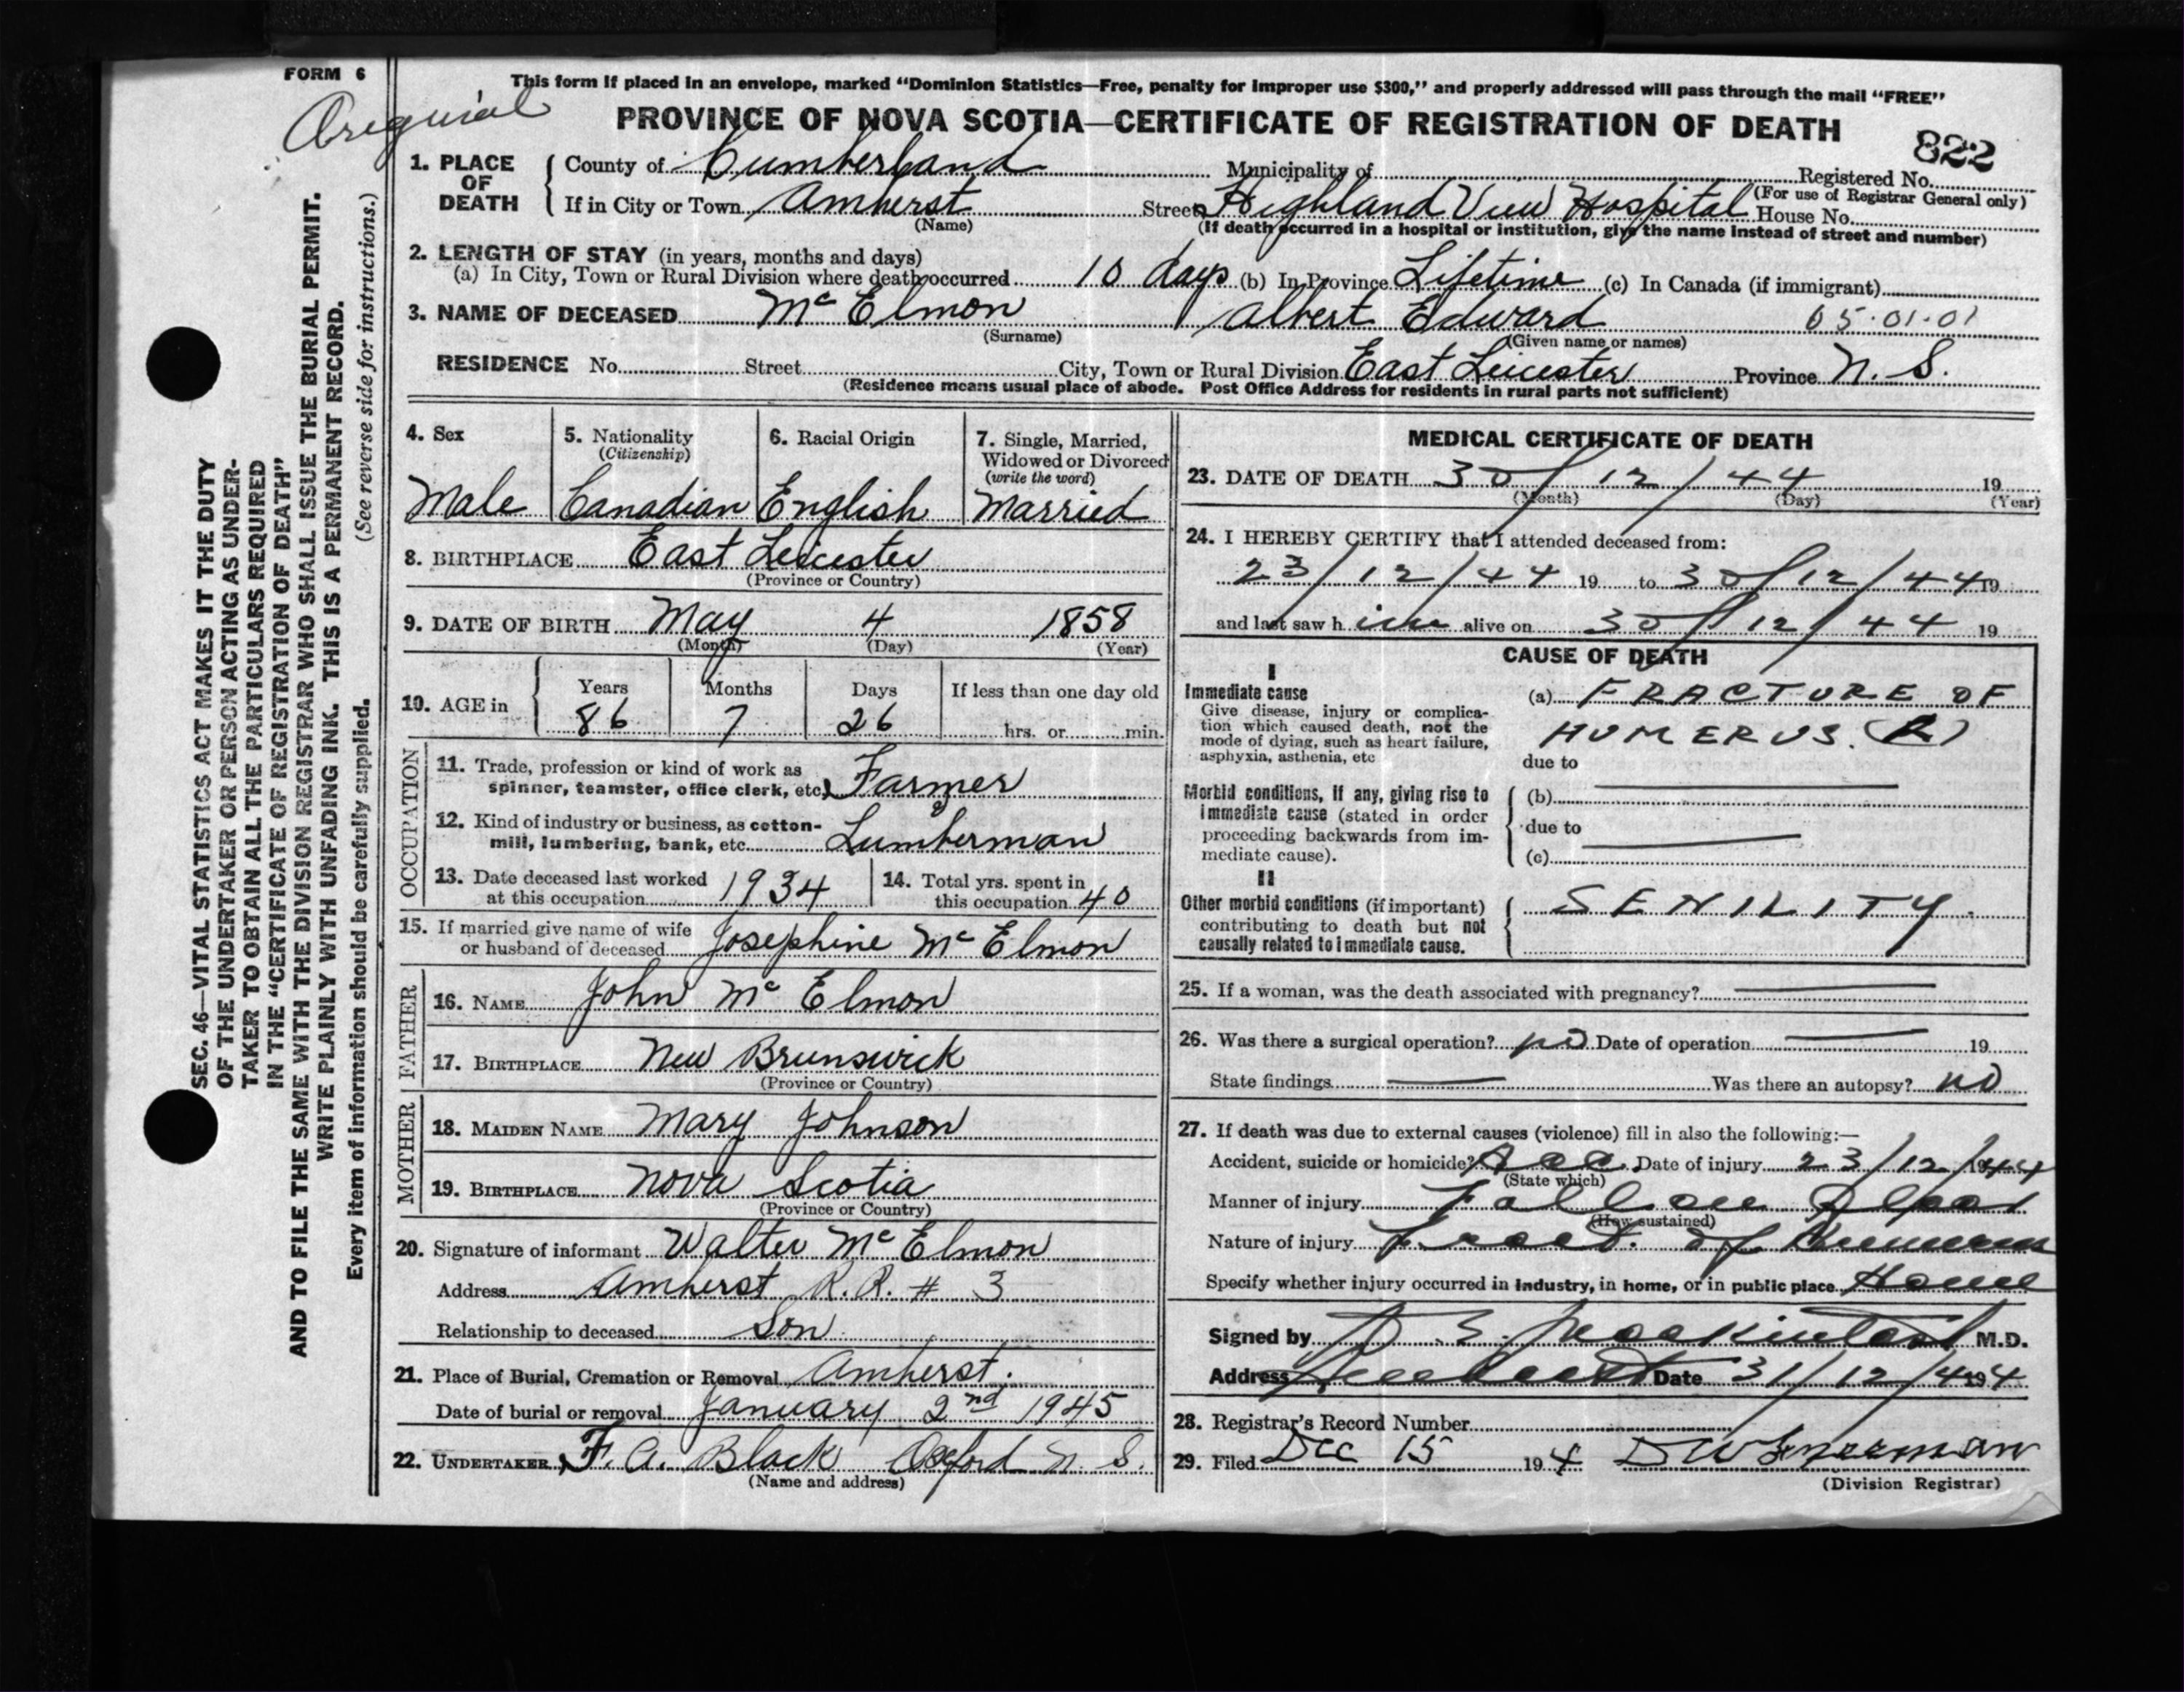 FORM 6
Original
This form if placed in an envelope, marked "Dominion Statistics—Free, penalty for improper use $300," and properly addressed will pass through the mail "FREE"
PROVINCE OF NOVA SCOTIA—CERTIFICATE OF REGISTRATION OF DEATH
822
1. PLACE OF DEATH County of Cumberland Municipality of Registered No.
(For use of Registrar General only)
If in City or Town Amherst Street Highland View Hospital House No.
(Name) (If death occurred in a hospital or institution, give the name instead of street and number)
2. LENGTH OF STAY (in years, months and days)
(a) In City, Town or Rural Division where death occurred 10 days (b) In Province Lifetime (c) In Canada (if immigrant)
3. NAME OF DECEASED Mc Elmon Albert Edward 05.01.01
(Surname) (Given name or names)
RESIDENCE No. Street City, Town or Rural Division East Leicester Province N. S.
(Residence means usual place of abode. Post Office Address for residents in rural parts not sufficient)
SEC. 46—VITAL STATISTICS ACT MAKES IT THE DUTY
OF THE UNDERTAKER OR PERSON ACTING AS UNDER-
TAKER TO OBTAIN ALL THE PARTICULARS REQUIRED
IN THE "CERTIFICATE OF REGISTRATION OF DEATH"
AND TO FILE THE SAME WITH THE DIVISION REGISTRAR WHO SHALL ISSUE THE BURIAL PERMIT.
WRITE PLAINLY WITH UNFADING INK. THIS IS A PERMANENT RECORD.
Every item of information should be carefully supplied. (See reverse side for instructions.)
4. Sex
Male
5. Nationality
(Citizenship)
Canadian
6. Racial Origin
English
7. Single, Married,
Widowed or Divorced
(write the word)
Married
8. BIRTHPLACE East Leicester
(Province or Country)
9. DATE OF BIRTH May 4 1858
(Month) (Day) (Year)
10. AGE in Years Months Days If less than one day old
86 7 26 hrs. or min.
OCCUPATION
11. Trade, profession or kind of work as
spinner, teamster, office clerk, etc. Farmer
&
12. Kind of industry or business, as cotton-
mill, lumbering, bank, etc. Lumberman
13. Date deceased last worked
at this occupation 1934
14. Total yrs. spent in
this occupation 40
15. If married give name of wife
or husband of deceased Josephine Mc Elmon
FATHER
16. NAME John Mc Elmon
17. BIRTHPLACE New Brunswick
(Province or Country)
MOTHER
18. MAIDEN NAME Mary Johnson
19. BIRTHPLACE Nova Scotia
(Province or Country)
20. Signature of informant Walter Mc Elmon
Address Amherst R. R. # 3
Relationship to deceased Son
21. Place of Burial, Cremation or Removal Amherst.
Date of burial or removal January 2nd 1945
22. UNDERTAKER F. A. Black Oxford N. S.
(Name and address)
MEDICAL CERTIFICATE OF DEATH
23. DATE OF DEATH 30/12/44 19
(Month) (Day) (Year)
24. I HEREBY CERTIFY that I attended deceased from:
23/12/44 19 to 30/12/44 19
and last saw h im alive on 30/12/44 19
CAUSE OF DEATH
I
Immediate cause
Give disease, injury or complica-
tion which caused death, not the
mode of dying, such as heart failure,
asphyxia, asthenia, etc
(a) FRACTURE OF
HUMERUS. (R)
due to
Morbid conditions, if any, giving rise to
immediate cause (stated in order
proceeding backwards from im-
mediate cause).
(b)
due to
(c)
II
Other morbid conditions (if important)
contributing to death but not
causally related to immediate cause.
SENILITY.
25. If a woman, was the death associated with pregnancy?
26. Was there a surgical operation? no Date of operation 19
State findings Was there an autopsy? no
27. If death was due to external causes (violence) fill in also the following:—
Accident, suicide or homicide? Acc. Date of injury 23/12/44
(State which)
Manner of injury Fall on floor
(How sustained)
Nature of injury Fract. of Humerus
Specify whether injury occurred in industry, in home, or in public place Home
Signed by Mackintosh M.D.
Address Amherst Date 31/12/44 19
28. Registrar's Record Number
29. Filed Dec 15 194
(Division Registrar)